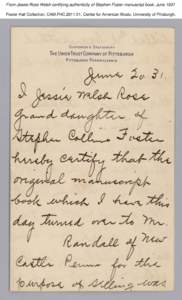 From Jessie Rose Welsh certifying authenticity of Stephen Foster manuscript book, June 1931
Foster Hall Collection, CAM.FHC.2011.01, Center for American Music, University of Pittsburgh.
The Union Trust Company of Pittsburgh
Pittsburgh Pennsylvania
June 20. 31.
I Jessie Welsh Rose
grand daughter of
Stephen Collins Foster
hereby certify that the
original manuscript
book which I have this
day turned over to Mr.
Randall of New
Castle Penna for the
purpose of selling was